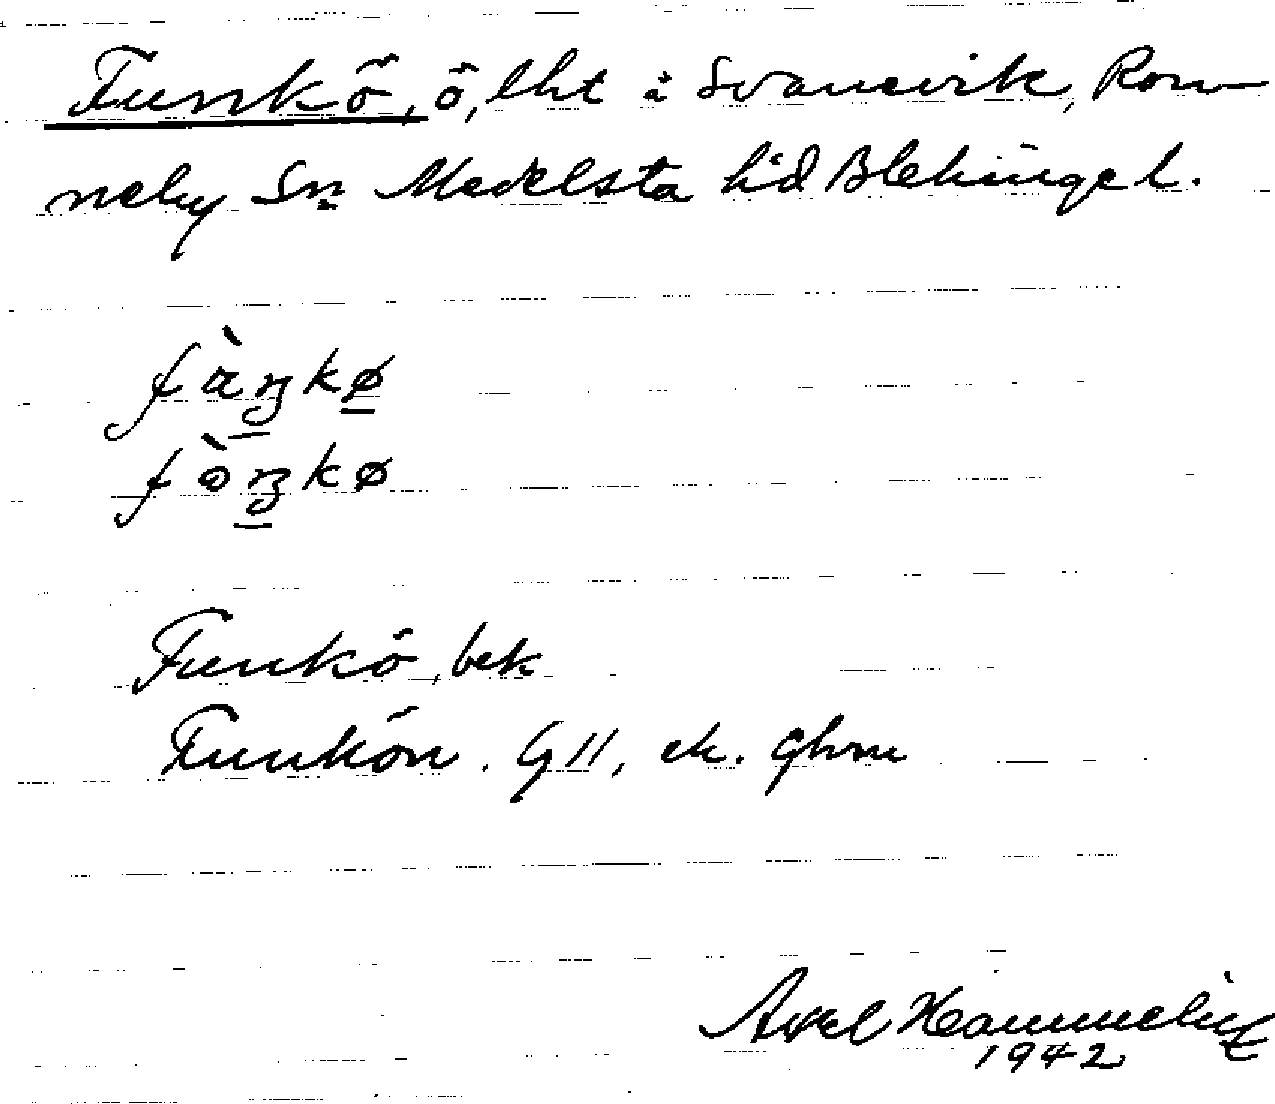 Funkö, ö, lht i Svanevik, Ron-
neby Sn Medelsta hd Blekinge l.
fàŋkø
fòŋkø
Funkö, bek
Funkön. G11, ek. Ghrm
Axel
1942